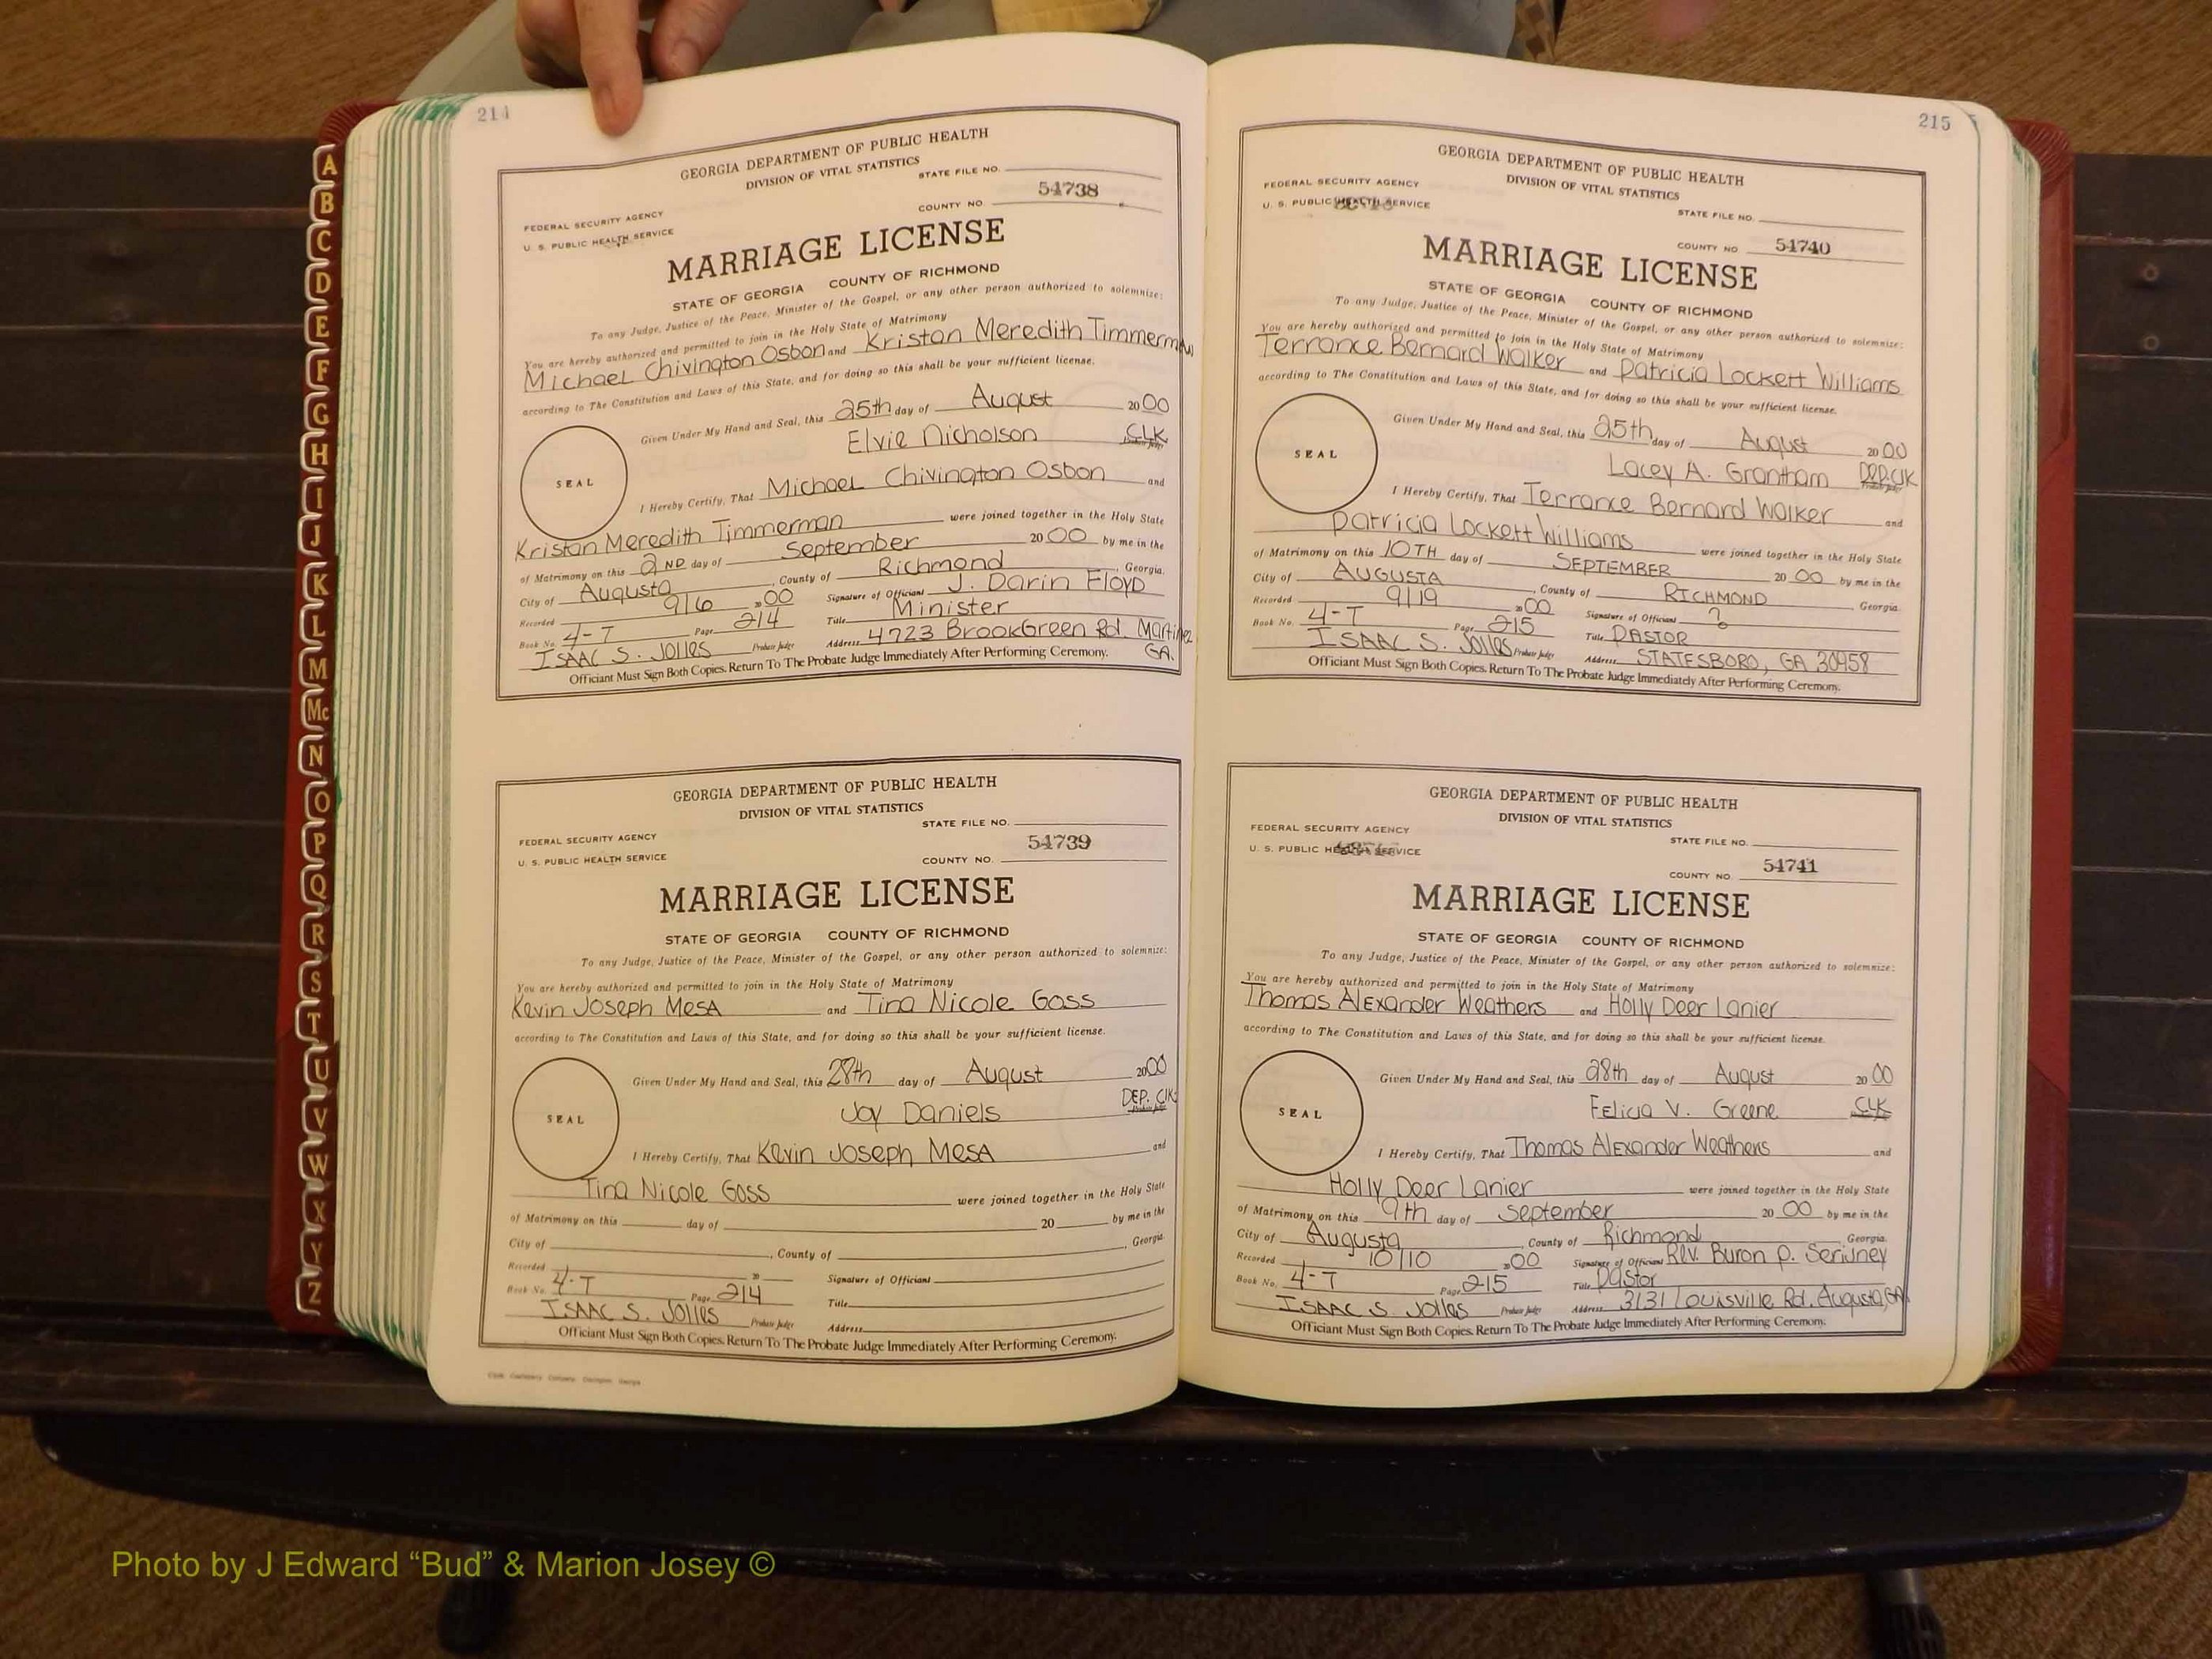 A
B
C
D
E
F
G
H
I
J
K
L
M
Mc
N
O
P
Q
R
S
T
U
V
W
X
Y
Z
214
GEORGIA DEPARTMENT OF PUBLIC HEALTH
DIVISION OF VITAL STATISTICS
STATE FILE NO.
54738
COUNTY NO.
FEDERAL SECURITY AGENCY
U. S. PUBLIC HEALTH SERVICE
MARRIAGE LICENSE
STATE OF GEORGIA COUNTY OF RICHMOND
To any Judge, Justice of the Peace, Minister of the Gospel, or any other person authorized to solemnize:
You are hereby authorized and permitted to join in the Holy State of Matrimony
Michael Chivington Osbon and Kristan Meredith Timmerman
according to The Constitution and Laws of this State, and for doing so this shall be your sufficient license.
Given Under My Hand and Seal, this 25th day of August 2000
Elvie Nicholson CLK
Probate Judge
SEAL
I Hereby Certify, That Michael Chivington Osbon and
Kristan Meredith Timmerman were joined together in the Holy State
of Matrimony on this 2ND day of September 20 00 by me in the
City of Augusta, County of Richmond, Georgia.
Recorded 9/6 2000 Signature of Officiant J. Darin Floyd
Book No. 4-T Page 214 Title Minister
ISAAC S. Jolles Probate Judge Address 4723 BrookGreen Rd. Martinez GA.
Officiant Must Sign Both Copies. Return To The Probate Judge Immediately After Performing Ceremony.
GEORGIA DEPARTMENT OF PUBLIC HEALTH
DIVISION OF VITAL STATISTICS
STATE FILE NO.
FEDERAL SECURITY AGENCY
54739
U. S. PUBLIC HEALTH SERVICE
COUNTY NO.
MARRIAGE LICENSE
STATE OF GEORGIA COUNTY OF RICHMOND
To any Judge, Justice of the Peace, Minister of the Gospel, or any other person authorized to solemnize:
You are hereby authorized and permitted to join in the Holy State of Matrimony
Kevin Joseph MesA and Tina Nicole Goss
according to The Constitution and Laws of this State, and for doing so this shall be your sufficient license.
Given Under My Hand and Seal, this 28th day of August 2000
Joy Daniels DEP. Clk
Probate Judge
SEAL
I Hereby Certify, That Kevin Joseph MesA and
Tina Nicole Goss were joined together in the Holy State
of Matrimony on this day of 20 by me in the
City of , County of , Georgia
Recorded 20 Signature of Officiant
Book No. 4-T Page 214 Title
ISAAC S. Jolles Probate Judge Address
Officiant Must Sign Both Copies. Return To The Probate Judge Immediately After Performing Ceremony.
215
GEORGIA DEPARTMENT OF PUBLIC HEALTH
DIVISION OF VITAL STATISTICS
FEDERAL SECURITY AGENCY
U. S. PUBLIC HEALTH SERVICE
STATE FILE NO.
COUNTY NO. 54740
MARRIAGE LICENSE
STATE OF GEORGIA COUNTY OF RICHMOND
To any Judge, Justice of the Peace, Minister of the Gospel, or any other person authorized to solemnize:
You are hereby authorized and permitted to join in the Holy State of Matrimony
Terrance Bernard Walker and Patricia Lockett Williams
according to The Constitution and Laws of this State, and for doing so this shall be your sufficient license.
Given Under My Hand and Seal, this 25th day of August 2000
Lacey A. Grantham DEP. Clk
Probate Judge
SEAL
I Hereby Certify, That Terrance Bernard Walker and
Patricia Lockett Williams were joined together in the Holy State
of Matrimony on this 10TH day of SEPTEMBER 20 00 by me in the
City of AUGUSTA, County of RICHMOND, Georgia.
Recorded 9/19 2000 Signature of Officiant ?
Book No. 4-T Page 215 Title PASTOR
ISAAC S. Jolles Probate Judge Address STATESBORO, GA 30458
Officiant Must Sign Both Copies. Return To The Probate Judge Immediately After Performing Ceremony.
GEORGIA DEPARTMENT OF PUBLIC HEALTH
DIVISION OF VITAL STATISTICS
FEDERAL SECURITY AGENCY
U. S. PUBLIC HEALTH SERVICE
STATE FILE NO.
COUNTY NO. 54741
MARRIAGE LICENSE
STATE OF GEORGIA COUNTY OF RICHMOND
To any Judge, Justice of the Peace, Minister of the Gospel, or any other person authorized to solemnize:
You are hereby authorized and permitted to join in the Holy State of Matrimony
Thomas Alexander Weathers and Holly Deer Lanier
according to The Constitution and Laws of this State, and for doing so this shall be your sufficient license.
Given Under My Hand and Seal, this 28th day of August 20 00
Felicia V. Greene CLK
SEAL
I Hereby Certify, That Thomas Alexander Weathers and
Holly Deer Lanier were joined together in the Holy State
of Matrimony on this 9th day of September 20 00 by me in the
City of Augusta, County of Richmond, Georgia.
Recorded 10/10 2000 Signature of Officiant Rev. Buron P.
Book No. 4-T Page 215 Title Pastor
ISAAC S. Jolles Probate Judge Address 3131 Louisville Rd. Augusta, GA
Officiant Must Sign Both Copies. Return To The Probate Judge Immediately After Performing Ceremony.
Photo by J Edward “Bud” & Marion Josey ©